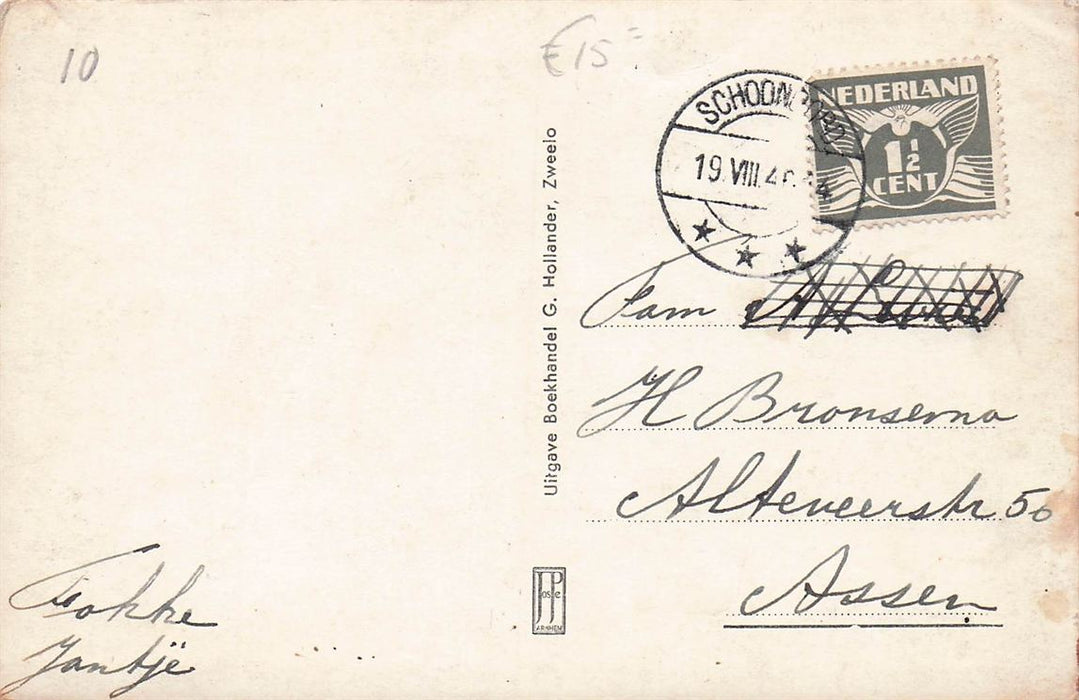 10
€15=
SCHOONOORD
19.VIII.46
NEDERLAND
1½
CENT
Uitgave Boekhandel G. Hollander, Zweelo
Fam
H Bronsema
Alteveerstr 50
Assen
Fokke
Jantje
JosPé
ARNHEM